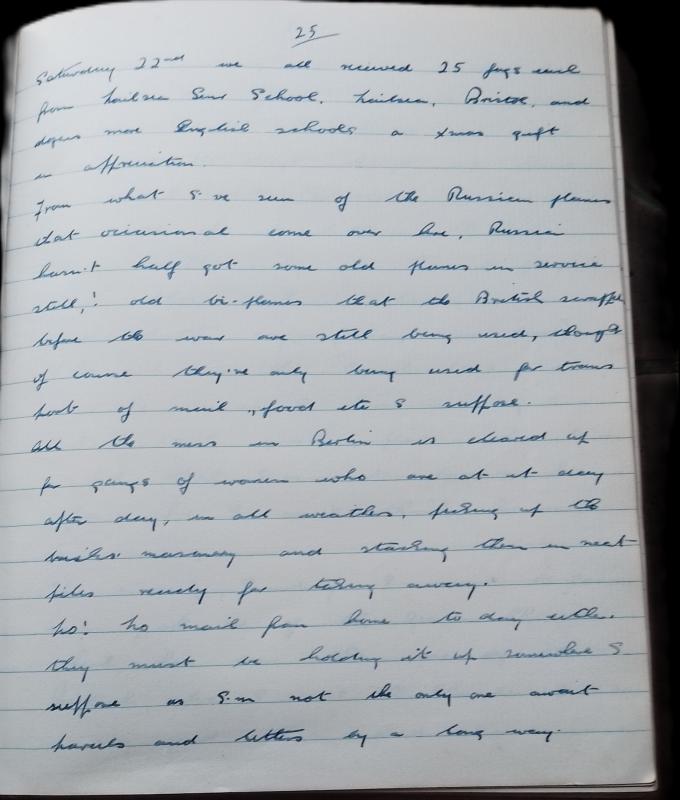 25
Saturday 22nd we all received 25 fags each
from Nailsea Senr School, Nailsea, Bristol, and
dozens more English schools a Xmas gift
in appreciation.
From what I've seen of the Russian planes
that occasional come over here, Russia
hasn't half got some old planes in service
still,! old bi-planes that the British scrapped
before the war are still being used, though
of course they're only being used for trans
port of mail, food etc I suppose.
All the mess in Berlin is cleared up
by gangs of women who are at it day
after day, in all weathers, picking up the
bricks masonary and stacking them in neat
piles ready for taking away.
No! No mail from home to day either.
They must be holding it up somewhere I
suppose as I'm not the only one await
parcels and letters by a long way.